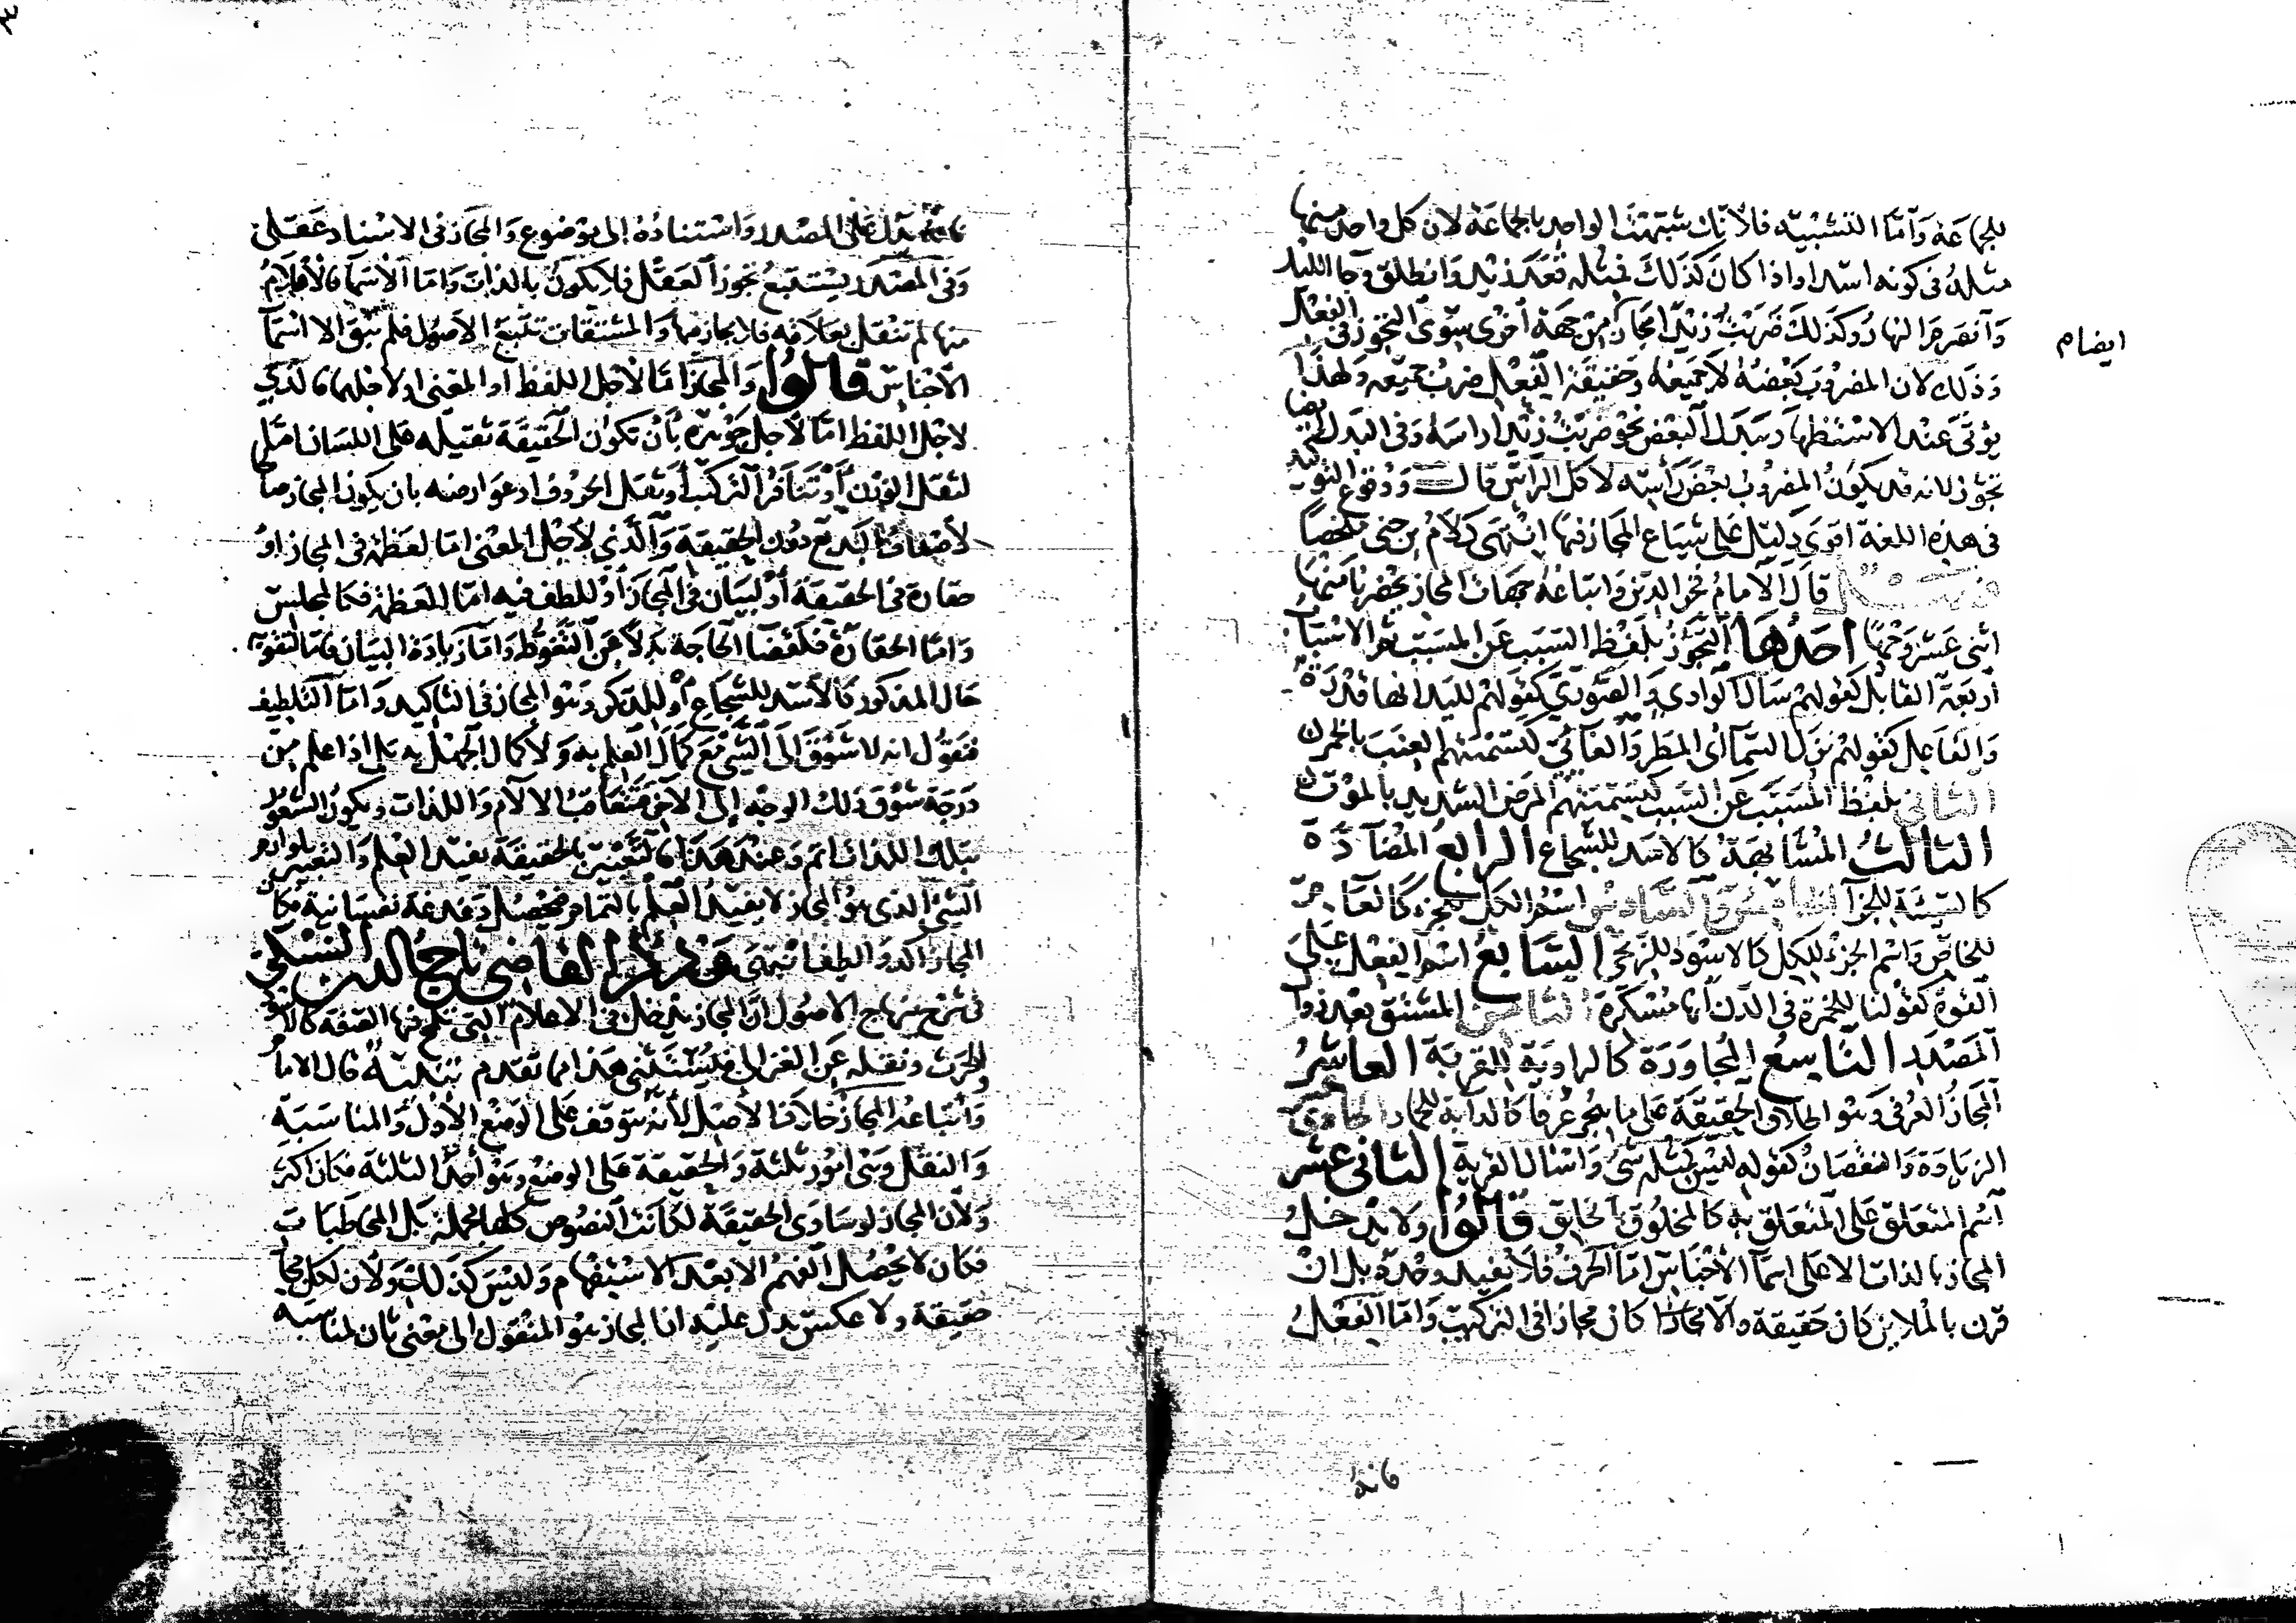 للجماعة وأما التشبيه فلأنك شبهت الواحد بالجماعة لان كل واحد منها
مثله في كونه اسدا واذا كان كذلك فمثله قعد زيد وانطلق وجا الليل
وانصرم النهار وكذلك ضربت زيدا مجاز من جهة اخرى سوى التجوز في الفعل
ايضا م
وذلك لان المضروب بعضه لا جميعه وحقيقة الفعل ضرب جميعه ولهذا
يوتى عند الاستظهار ببدل البعض نحو ضربت زيدا راسه وفي البدل ايضا
تجوز لانه قد يكون المضروب بعض راسه لا كل الراس قال ووقوع التوكيد
في هذه اللغة اقوى دليل على شياع المجاز فيها انتهى كلام بن جني ملخصا
قال الامام فخر الدين واتباعه جهات المجاز يحضرنا منها
اثنى عشر وجها احدها التجوز بلفظ السبب عن المسبب ثم الاسباب
اربعة القابل كقولهم سال الوادي والصوري كقولهم لليد انها قدرة
والفاعل كقولهم نزل السما اي المطر والغائي كتسميتهم العنب بالخمر
الثاني بلفظ المسبب عن السبب كتسميتهم المرض الشديد بالموت
الثالث المشابهة كالاسد للشجاع الرابع المضادة
كالسيئة للجزا الخامس والسادس اسم الكل للجزء كالعام
للخاص واسم الجزء للكل كالاسود للزنجي السابع اسم الفعل على
القوة كقولنا للخمرة في الدن انها مسكرة الثامن المشتق بعد زوال
المصدر التاسع المجاورة كالراوية للقربة العاشر
المجاز العرفي وهو اطلاق الحقيقة على ما هجر عرفا كالدابة للحمار الحادي عشر
الزيادة والنقصان كقوله ليس كمثله شي واسال القرية الثاني عشر
اسم المتعلق على المتعلق به كالمخلوق بالخلق قالوا ولا يدخل
المجاز بالذات الا على اسما الاجناس اما الحرف فلا يفيد وحده بل ان
قرن بالملايم كان حقيقة والا مجازا كان مجازا في التركيب واما الفعل
فانه
فانه يدل على المصدر واستناده الى موضوع والمجاز في الاسناد عقلي
وفي المصدر يستتبع تجوز العقل فلا يكون بالذات واما الاسما فالاعلام
منها لم تنقل بعلاقة فلا مجاز فيها والمشتقات تتبع الاصول فلم يبق الا اسما
الاجناس قالوا والمجاز اما لاجل اللفظ او المعنى او لاجلهما فالذي
لاجل اللفظ اما لاجل جوهره بان تكون الحقيقة ثقيلة على اللسان اما
لثقل الوزن او تنافر التركيب او ثقل الحروف او عوارضه بان يكون المجاز صالحا
لاصناف البديع دون الحقيقة والذي لاجل المعنى اما لعظمة في المجاز او
حقارة في الحقيقة او لبيان في المجاز او للطف فيه اما العظمة فكالمجلس
واما الحقارة فكقضا الحاجة بدلا عن التغوط واما زيادة البيان فاما لتقوية
حال المذكور كالاسد للشجاع او للذكر وهو المجاز في التاكيد واما التلطيف
فنقول انه لا شوق الى الشي مع كمال العلم به ولا كمال الجهل به بل اذا علم من
وجه شوق ذلك الوجه الى الاخر فتتعاقب الالام واللذات ويكون الشعور
بتلك اللذات اتم وعند هذا فالتعبير بالحقيقة يفيد العلم والتعبير بلوازم
الشي الذي هو المجاز لا يفيد العلم بالتمام فيحصل دغدغة نفسانية فكان
المجاز اكد والطف انتهى وذكر القاضي تاج الدين السبكي
في شرح منهاج الاصول ان المجاز يدخل في الاعلام التي تلمح فيها الصفة كالاسود
الحرث ونقله عن الغزالي فيستثنى هذا مما تقدم تنبيه قال الامام
واتباعه المجاز خلاف الاصل لأنه يتوقف على الوضع الاول والمناسبة
والنقل وهي امور ثلثة والحقيقة على الوضع وهو احد الثلثة فكان اكثر
ولان المجاز لو ساوى الحقيقة لكانت النصوص كلها مجملة بل المخاطبات
فكان لا يحصل الفهم الا بعد الاستفهام وليس كذلك ولان لكل مجاز
حقيقة ولا عكس يدل عليه ان المجاز هو المنقول الى معنى ثان لمناسبة